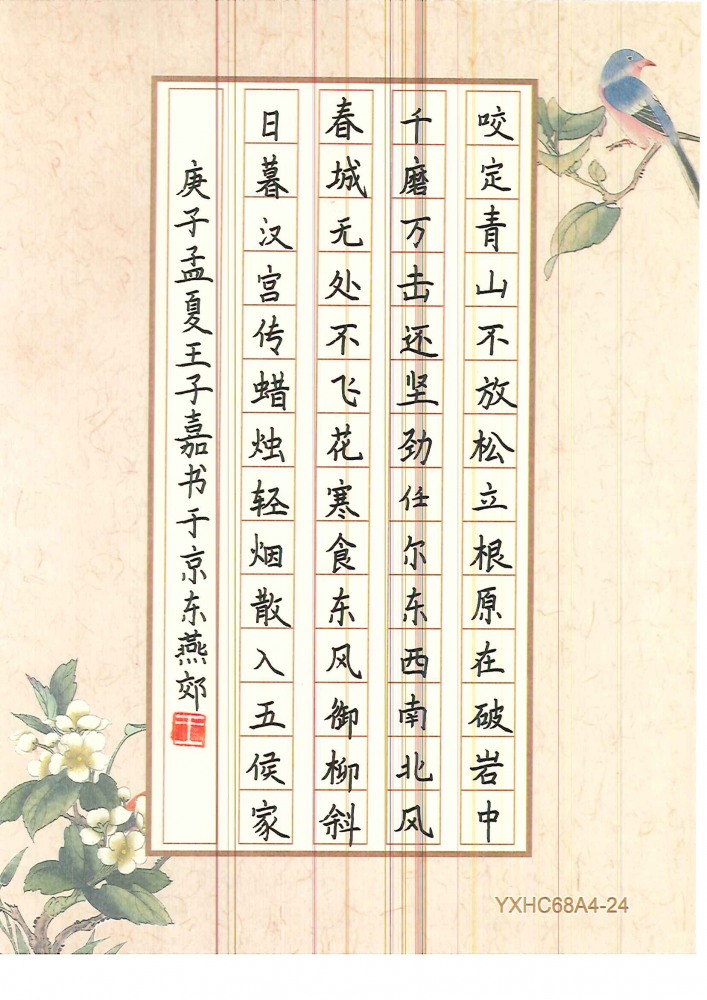 咬定青山不放松立根原在破岩中
千磨万击还坚劲任尔东西南北风
春城无处不飞花寒食东风御柳斜
日暮汉宫传蜡烛轻烟散入五侯家
庚子孟夏王子嘉书于京东燕郊
王
YXHC68A4-24